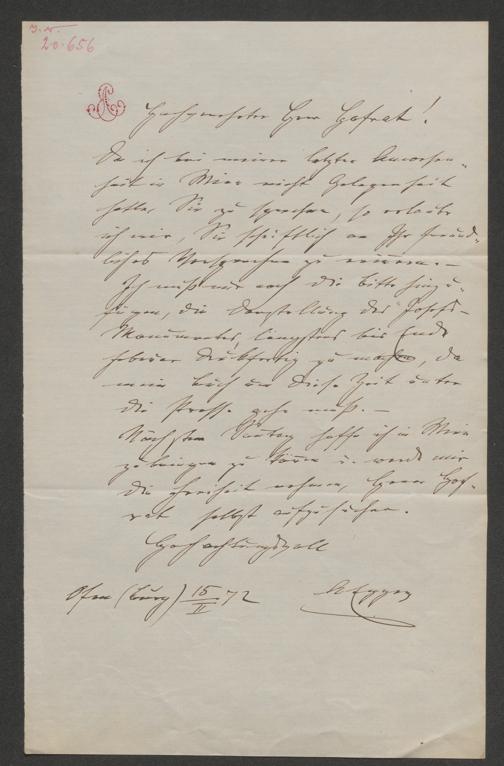 I.N.
20.656
Hochverehrter Herr Hofrat!
Da ich bei meiner letzten Anwesen-
heit in Wien nicht Gelegenheit
hatte, Sie zu sprechen, so erlaube
ich mir, Sie schriftlich an Ihr freund-
liches Versprechen zu erinnern. –
Ich muß nur noch die Bitte hinzu-
fügen, die Darstellung des "Josefs-
Monumentes" längstens bis Ende
Februar druckfertig zu machen, da
mein Buch um diese Zeit unter
die Presse gehen muß. –
Nächsten Sonntag hoffe ich in Wien
zubringen zu können u. werde mir
die Freiheit nehmen, Herrn Hof-
rat selbst aufzusuchen.
Hochachtungsvoll
Ofen (Burg) 15/II 72